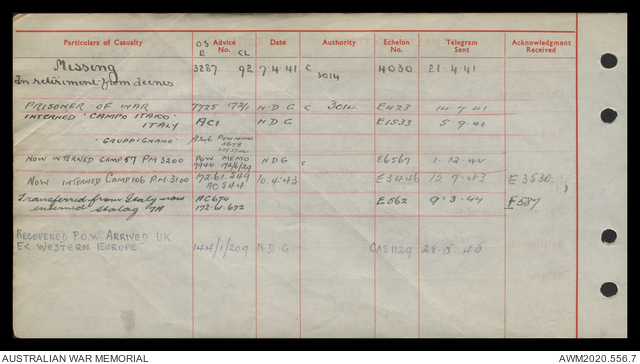 Particulars of Casualty OS Advice CL Date Authority Echelon Telegram Acknowledgment
E No. No. Sent Received
Missing 3287 92 7.4.41 C 3014 4030 21.4.41
In retirement from
PRISONER OF WAR 7725 N.D.G C 3014 E423 14.7.41
INTERNED "CAMPO ITALY AC1 N.D.G E1533 5.9.41
"GRUPPIGNANO"
NOW INTERNED CAMP 57 P.M 3200 POW MEMO N.D.G C E6567 1.12.42
NOW INTERNED CAMP 106 P.M 3100 AC544 10.4.43 E3446 12.7.43 E3530
Transferred from Italy now AC674 E562 9.3.44 E587
interned Stalag 7A 172.W.672
RECOVERED P.O.W. ARRIVED UK 144/1/209 N.D.G CAS1129 28.5.45
EX WESTERN EUROPE
AUSTRALIAN WAR MEMORIAL AWM2020.556.7